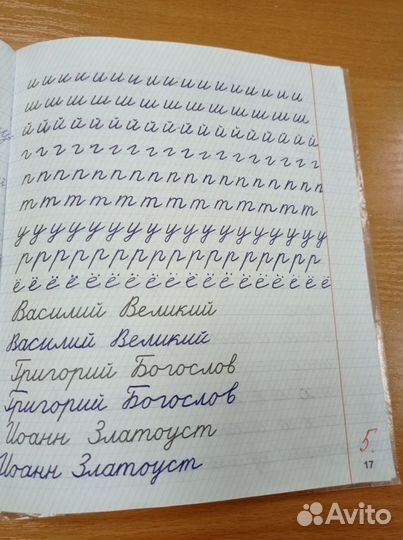 и и и и и и и и и и и и и и и и и
ш ш ш ш ш ш ш ш ш ш ш ш ш ш ш
й й й й й й й й й й й й й й й й й й
г г г г г г г г г г г г г г г г г г
п п п п п п п п п п п п п п п п п п
т т т т т т т т т т т т т т т
у у у у у у у у у у у у у у у у у у
р р р р р р р р р р р р р р р р р р
ё ё ё ё ё ё ё ё ё ё ё ё ё ё ё ё ё
Василий Великий
Василий Великий
Григорий Богослов
Григорий Богослов
Иоанн Златоуст
Иоанн Златоуст
5.
17
Avito